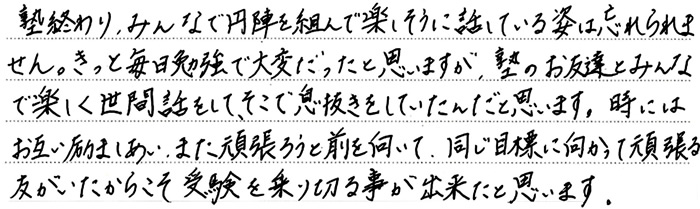 塾終わり、みんなで円陣を組んで楽しそうに話している姿は忘れられま
せん。きっと毎日勉強で大変だったと思いますが、塾のお友達とみんな
で楽しく世間話をして、そこで息抜きをしていたんだと思います。時には
お互い励ましあい、また頑張ろうと前を向いて、同じ目標に向かって頑張る
友がいたからこそ受験を乗り切る事が出来たと思います。